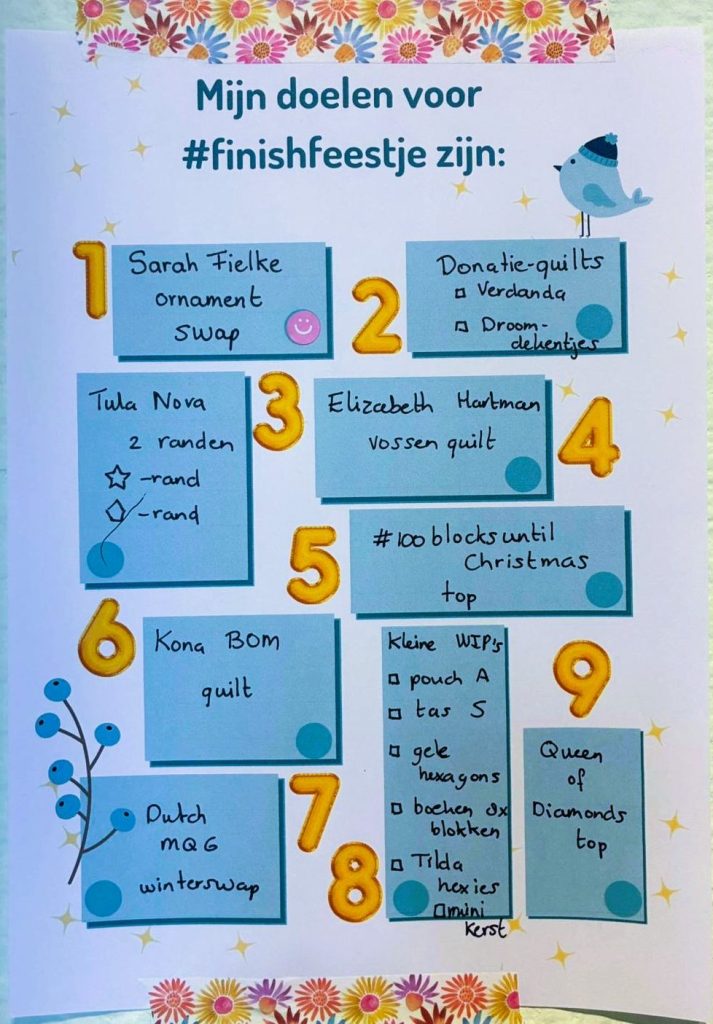 Mijn doelen voor
#finishfeestje zijn:
1
Sarah Fielke
ornament
swap
2
Donatie-quilts
Verdanda
Droom-
dekentjes
3
Tula Nova
2 randen
-rand
-rand
4
Elizabeth Hartman
vossen quilt
5
#100 blocks until
Christmas
top
6
Kona BOM
quilt
7
Dutch
MQG
winterswap
8
Kleine WIP's
pouch A
tas S
gele
hexagons
boeken
blokken
Tilda
hexies
mini
kerst
9
Queen
of
Diamonds
top